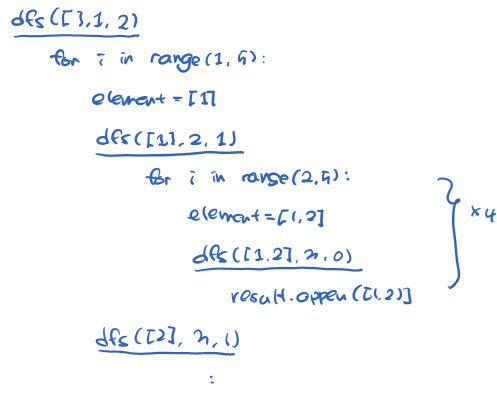 dfs([],1,2)
for i in range(1,5):
element=[1]
dfs([1],2,1)
for i in range(2,5):
element=[1,2]
×4
dfs([1,2],3,0)
result.appen([1,2)]
dfs([2],3,1)
: